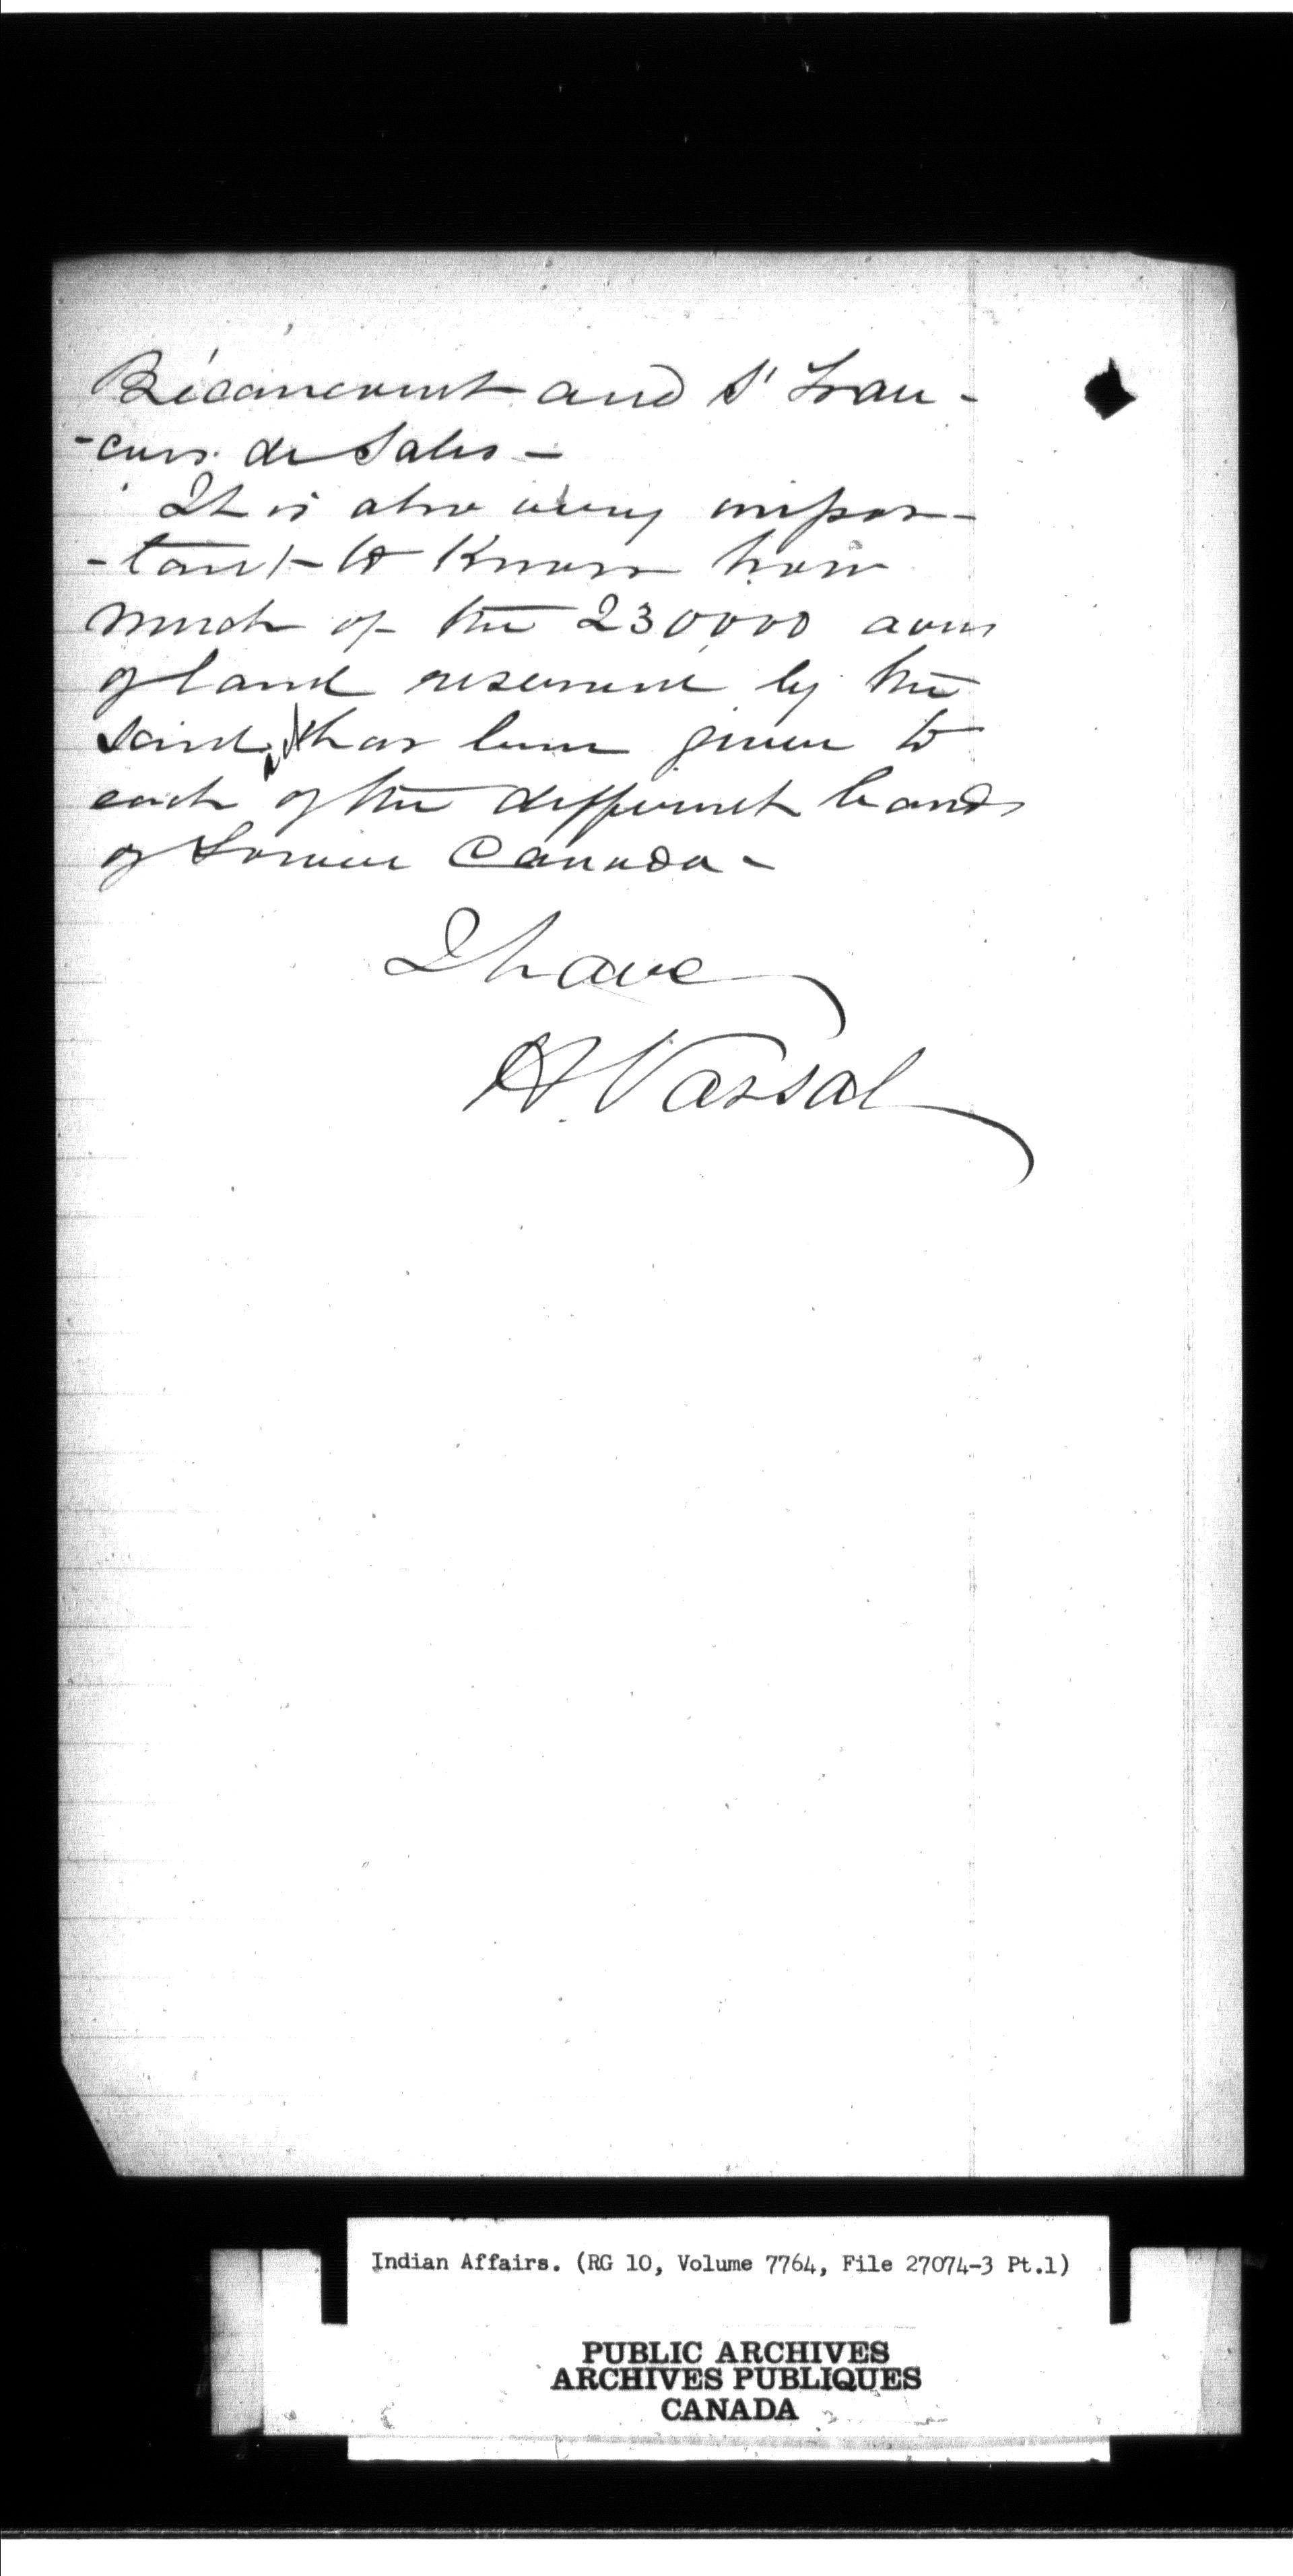 Bécancourt and St Fran-
-cois de Sales -
It is also very impor-
-tant to Know how
much of the 230000 acres
of land reserved by the
said act has been given to
each of the different bands
of Lower Canada -
I have
H. Vassal
Indian Affairs. (RG 10, Volume 7764, File 27074-3 Pt.1)
PUBLIC ARCHIVES
ARCHIVES PUBLIQUES
CANADA